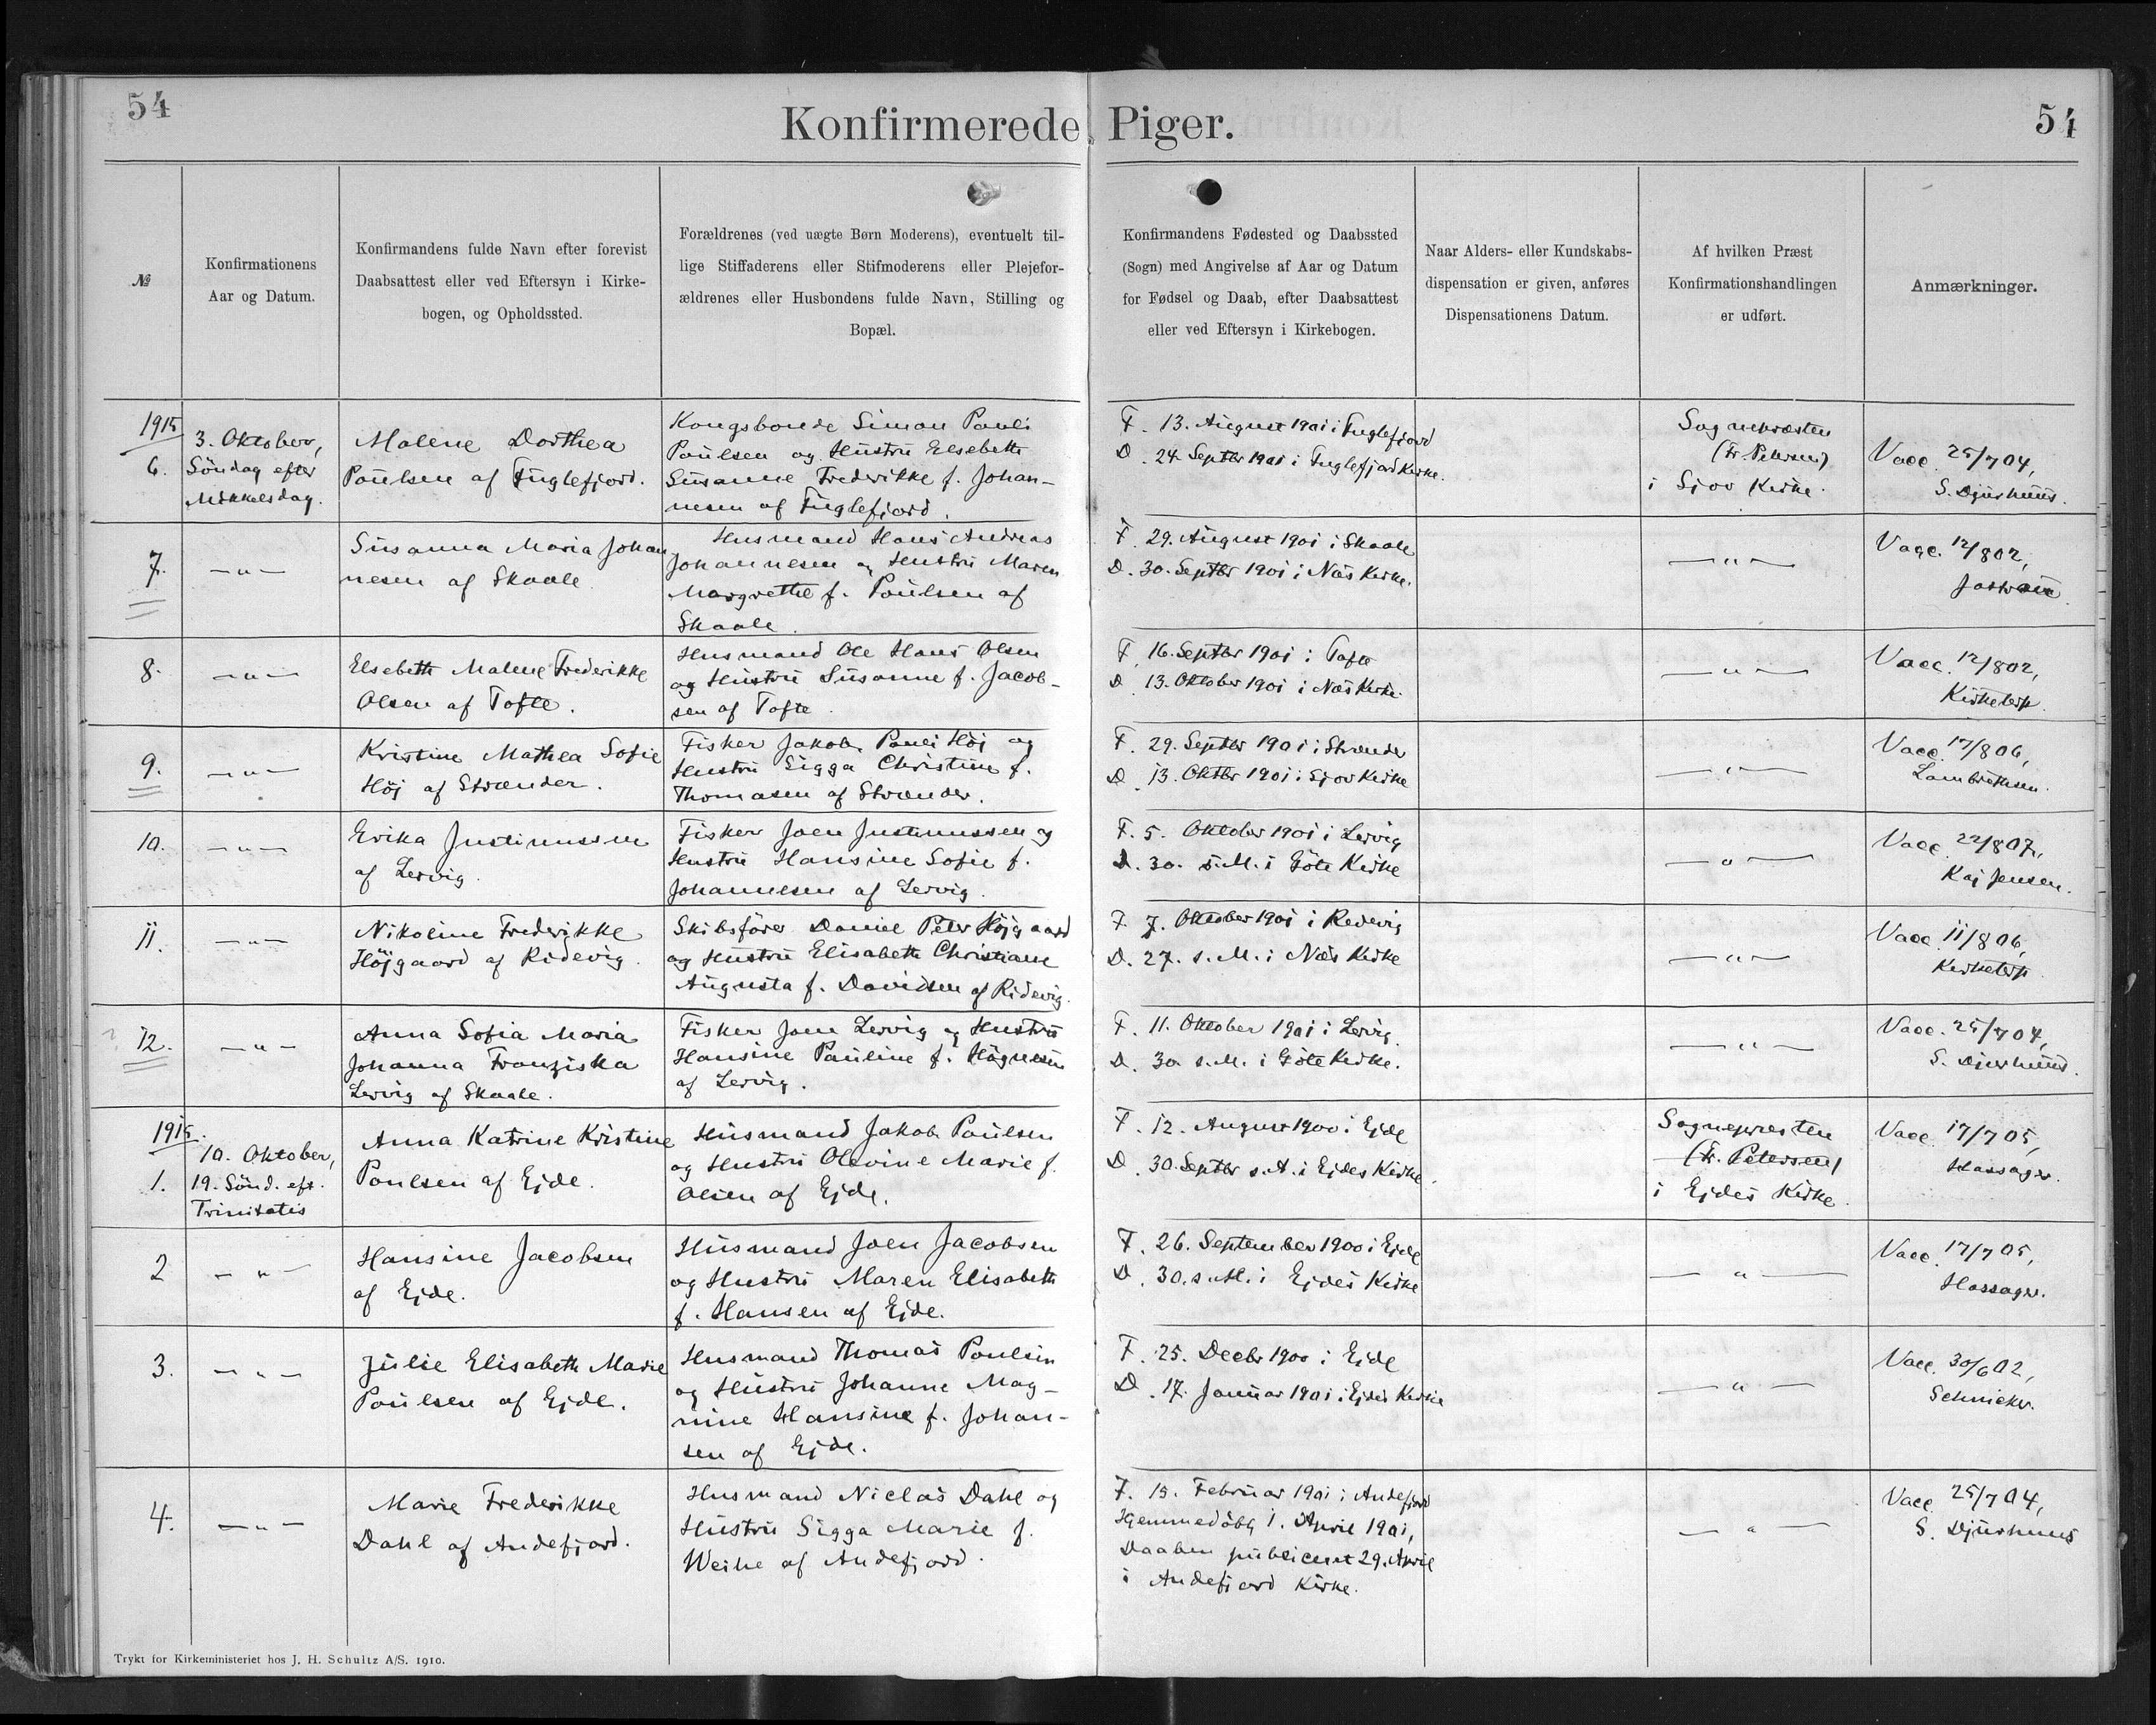 54
Konfirmerede Piger.
54
№
Konfirmationens
Aar og Datum.
Konfirmandens fulde Navn efter forevist
Daabsattest eller ved Eftersyn i Kirke-
bogen, og Opholdssted.
Forældrenes (ved uægte Børn Moderens), eventuelt til-
lige Stiffaderens eller Stifmoderens eller Plejefor-
ældrenes eller Husbondens fulde Navn, Stilling og
Bopæl.
Konfirmandens Fødested og Daabssted
(Sogn) med Angivelse af Aar og Datum
for Fødsel og Daab, efter Daabsattest
eller ved Eftersyn i Kirkebogen.
Naar Alders- eller Kundskabs-
dispensation er given, anføres
Dispensationens Datum.
Af hvilken Præst
Konfirmationshandlingen
er udført.
Anmærkninger.
1915
6.
3. Oktober,
Söndag efter
Mikkelsdag.
Malene Dorthea
Poülsen af Füglefjord.
Kongsbonde Simon Pauli
Poülsen og Hüstrü Elsebeth
Süsanne Frederikke f. Johan-
nesen af Füglefjord.
F. 13. Aügüst 1901 i Füglefjord
D. 24. Septbr 1901 i Füglefjord Kirke.
Sognepræsten
(Fr. Petersen)
i Sjov Kirke.
Vacc. 25/7 04,
S. Djürhüüs.
7.
— „ —
Süsanna Maria Johan
nesen af Skaale.
Husmand Hans Andreas
Johannesen og Hustrü Maren
Margrethe f. Poülsen af
Skaale.
F. 29. Aügüst 1901 i Skaale
D. 30. Septbr 1901 i Næs Kirke.
— „ —
Vacc. 12/8 02,
8.
— „ —
Elsebeth Malene Frederikke
Olsen af Tofte.
Husmand Ole Hans Olsen
og Hüstrü Süsanne f. Jacob-
sen af Tofte.
F. 16. Septbr 1901 i Tofte
D. 13. Oktober 1901 i Næs Kirke.
— „ —
Vacc. 12/8 02,
Kirketerp.
9.
— „ —
Kristine Mathea Sofie
Höj af Strænder.
Fisker Jakob Pauli Höj og
Hustrü Sigga Christine f.
Thomasen af Strænder.
F. 29. Septbr 1901 i Strænder
D. 13. Oktbr 1901 i Sjov Kirke
— „ —
Vacc. 17/8 06,
Lambrethsen.
10.
— „ —
Erika Justinussen
af Lervig.
Fisker Joen Justinussen og
Hustrü Hansine Sofie f.
Johannesen af Lervig.
F. 5. Oktober 1901 i Lervig
D. 30. s. M. i Göte Kirke
— „ —
Vacc. 22/8 07,
Kaj Jensen.
11.
— „ —
Nikoline Frederikke
Höjgaard af Ridevig.
Skibsförer Daniel Peter Höjgaard
og Hustrü Elisabeth Christiane
Aügüsta f. Davidsen af Ridevig.
F. 7. Oktober 1901 i Redevig
D. 27. s. M. i Næs Kirke
— „ —
Vacc. 11/8 06,
Kirketerp
12.
— „ —
Anna Sofia Maria
Johanna Franziska
Lervig af Skaale.
Fisker Joen Lervig og Hustrü
Hansine Paüline f. Högnesen
af Lervig.
F. 11. Oktober 1901 i Lervig.
D. 30. s. M. i Göte Kirke.
— „ —
Vacc. 25/7 04,
S. Djürhüüs.
1915.
1.
10. Oktober,
19. Sönd. eft.
Trinitatis
Anna Katrine Kristine
Poulsen af Ejde.
Hüsmand Jakob Poülsen
og Hustrü Olevine Marie f.
Olsen af Ejde.
F. 12. August 1900 i Ejde
D. 30. Septbr s. A. i Ejdes Kirke.
Sognepræsten
(Fr. Petersen)
i Ejdes Kirke.
Vacc. 17/7 05,
Hassager.
2
— „ —
Hansine Jacobsen
af Ejde.
Hüsmand Joen Jacobsen
og Hustrü Maren Elisabeth
f. Hansen af Ejde.
F. 26. September 1900 i Ejde
D. 30. s. M. i Ejdes Kirke
— „ —
Vacc. 17/7 05,
Hassager.
3.
— „ —
Jülie Elisabeth Marie
Poülsen af Ejde.
Husmand Thomas Poulsen
og Hüstrü Johanne Mag-
nine Hansine f. Johan-
sen af Ejde.
F. 25. Decbr 1900 i Ejde
D. 17. Janüar 1901 i Ejdes Kirke
— „ —
Vacc. 30/6 02,
Schnicker.
4.
— „ —
Marie Frederikke
Dahl af Andefjord.
Husmand Niclas Dahl og
Hüstrü Sigga Marie f.
Weihe af Andefjord.
F. 15. Februar 1901 i Andefjord
Hjemmedöbt 1. April 1901,
Daaben publiceret 29. April
i Andefjord Kirke.
— „ —
Vacc. 25/7 04,
S. Djürhuus
Trykt for Kirkeministeriet hos J. H. Schultz A/S. 1910.